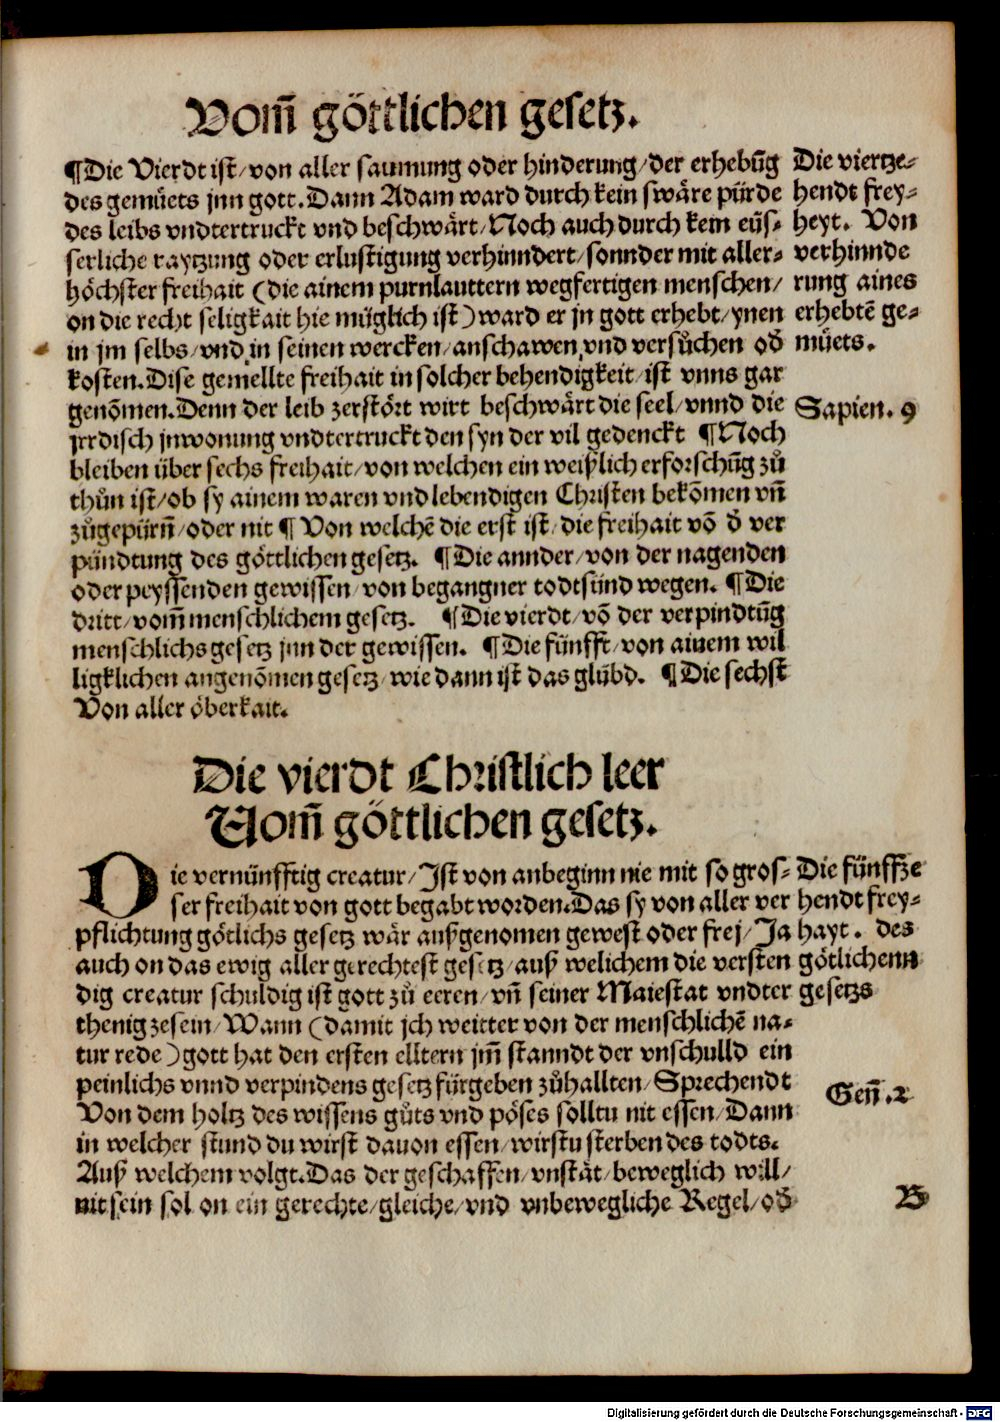 Vom̃ göttlichen gesetz.
¶Die Vierdt ist/von aller saumung oder hinderung/der erhebũg
des gemüets jnn gott. Dann Adam ward durch kein swäre pürde
des leibs vndtertruckt vnd beschwärt/Noch auch durch kein eüs⸗
serliche raytzung oder erlustigung verhinndert/sonnder mit aller⸗
höchster freihait (die ainem purnlauttern wegfertigen menschen/
on die recht seligkait hie müglich ist) ward er jn gott erhebt/ynen
in jm selbs/vnd in seinen wercken/anschawen vnd versůchen od̕
kosten. Dise gemellte freihait in solcher behendigkeit/ist vnns gar
genõmen. Denn der leib zerstört wirt beschwärt die seel/vnnd die
jrrdisch jnwonung vndtertruckt den syn der vil gedenckt ¶Noch
bleiben über sechs freihait/von welchen ein weißlich erforschũg zů
thůn ist/ob sy ainem waren vnd lebendigen Christen bekõmen vñ
zůgepürñ/oder nit ¶ Von welchẽ die erst ist/die freihait võ d̕ ver
pündtung des göttlichen gesetz. ¶Die annder/von der nagenden
oder peyssenden gewissen/von begangner todtsünd wegen. ¶Die
dritt/vom̃ menschlichem gesetz. ¶Die vierdt/võ der verpindtũg
menschlichs gesetz jnn der gewissen. ¶Die fünfft/von ainem wil
ligklichen angenõmen gesetz/wie dann ist das glübd. ¶Die sechst
Von aller öberkait.
Die viertze⸗
hendt frey⸗
heyt. Von
verhinnde
rung aines
erhebtẽ ge⸗
müets.
Sapien. 9
Die vierdt Christlich leer
Vom̃ göttlichen gesetz.
Die vernünfftig creatur/Ist von anbeginn nie mit so gros⸗
ser freihait von gott begabt worden. Das sy von aller ver
pflichtung götlichs gesetz wär außgenomen gewest oder frej/Ja
auch on das ewig aller gerechtest gesetz/auß welichem die versten
dig creatur schuldig ist gott zů eeren/vñ seiner Maiestat vndter
thenig zesein/Wann (damit jch weitter von der menschlichẽ na⸗
tur rede) gott hat den ersten elltern jm̃ stanndt der vnschulld ein
peinlichs vnnd verpindens gesetz fürgeben zůhallten/Sprechendt
Von dem holtz des wissens gůts vnd pöses solltu nit essen/Dann
in welcher stund du wirst dauon essen/wirstu sterben des todts.
Auß welchem volgt. Das der geschaffen/vnstät/beweglich will/
nit sein sol on ein gerechte/gleiche/vnd vnbewegliche Regel/od̕
Die fünffze
hendt frey⸗
hayt. des
götlichenn
gesetzs
Geñ.2
B
Digitalisierung gefördert durch die Deutsche Forschungsgemeinschaft - DFG